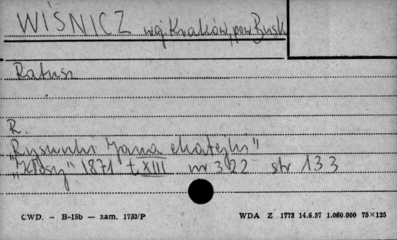 WIŚNICZ woj Kraków, pow. Busk
Ratusz
R.
Rysunki Jana Matejki"
"Kłosy" 1871 t. XIII nr 322 str 133
CWD. - B-15b - zam. 1753/P WDA Z 1773 14.6.57 1.060.000 75×125